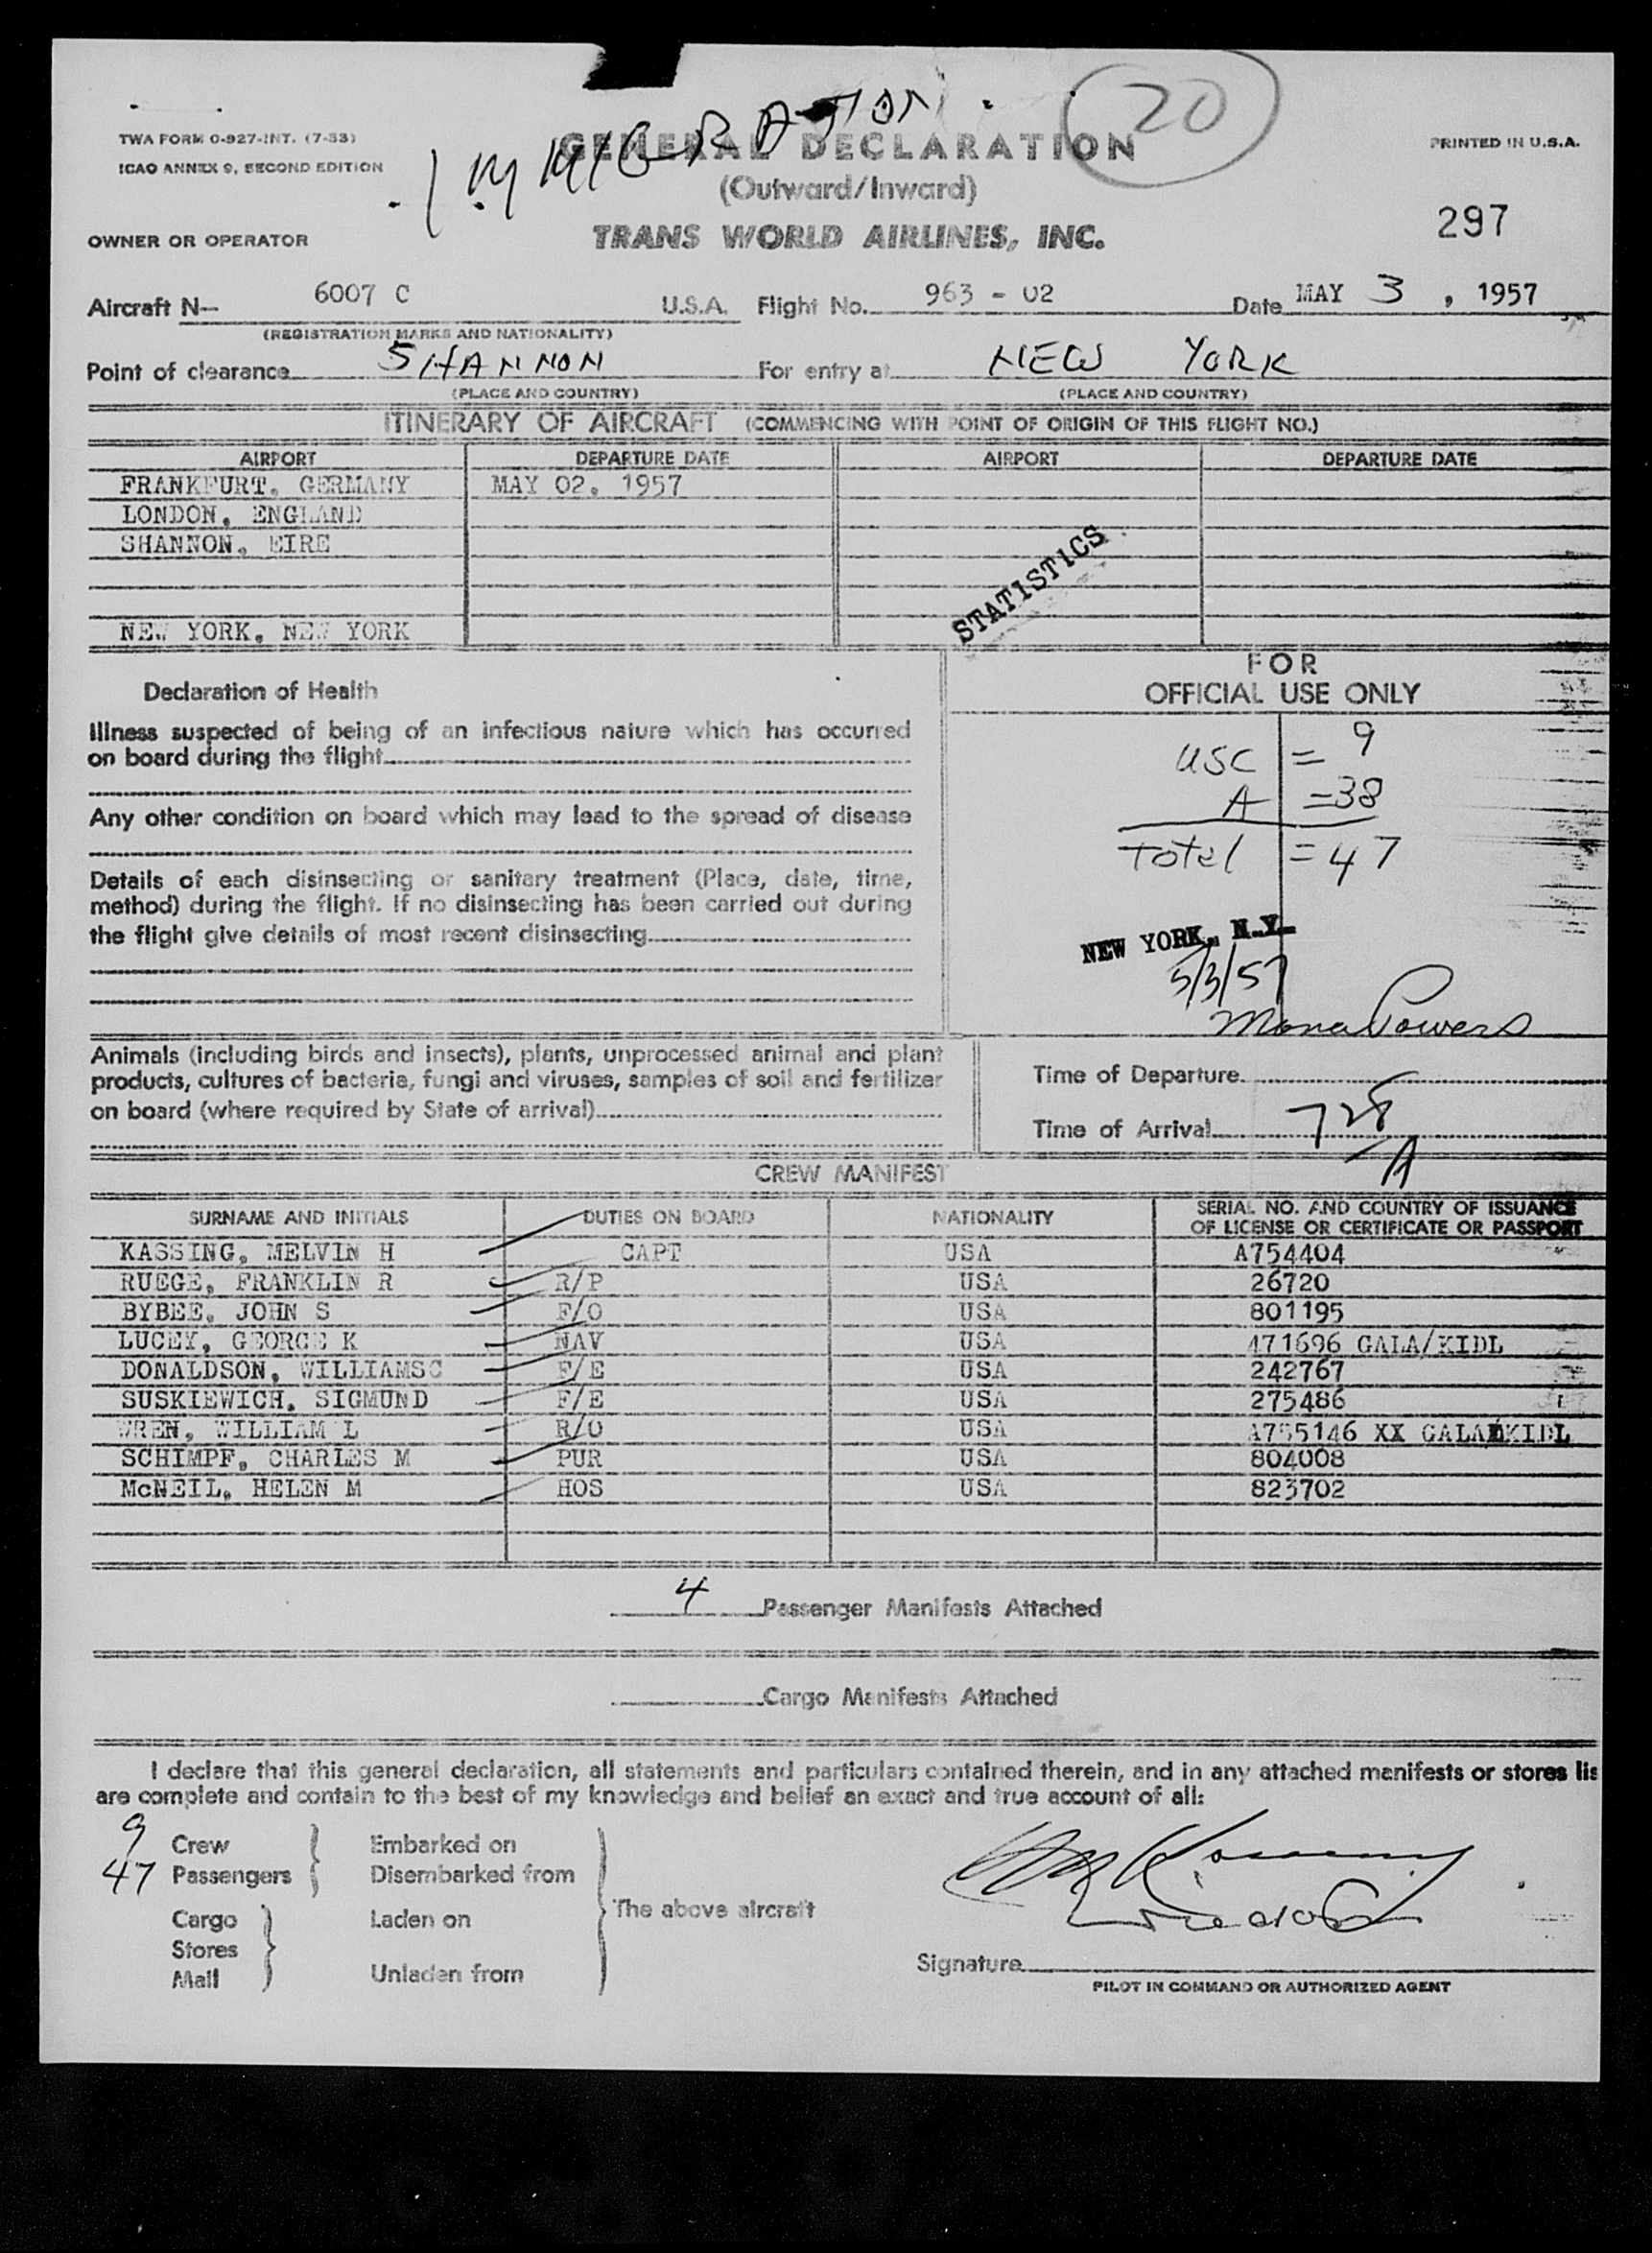 20
TWA FORM O-927-INT. (7-53)
ICAO ANNEX 9, SECOND EDITION
IMMIGRATION
GENERAL DECLARATION
(Outward/Inward)
PRINTED IN U.S.A.
297
OWNER OR OPERATOR TRANS WORLD AIRLINES, INC.
Aircraft N— 6007 C U.S.A. Flight No. 963 - 02 Date MAY 3, 1957
(REGISTRATION MARKS AND NATIONALITY)
Point of clearance SHANNON For entry at NEW YORK
(PLACE AND COUNTRY) (PLACE AND COUNTRY)
ITINERARY OF AIRCRAFT (COMMENCING WITH POINT OF ORIGIN OF THIS FLIGHT NO.)
AIRPORT DEPARTURE DATE AIRPORT DEPARTURE DATE
FRANKFURT, GERMANY MAY 02, 1957
LONDON, ENGLAND
SHANNON, EIRE
STATISTICS
NEW YORK, NEW YORK
Declaration of Health
Illness suspected of being of an infectious nature which has occurred
on board during the flight
Any other condition on board which may lead to the spread of disease
Details of each disinsecting or sanitary treatment (Place, date, time,
method) during the flight. If no disinsecting has been carried out during
the flight give details of most recent disinsecting
FOR
OFFICIAL USE ONLY
USC = 9
A = 38
Total = 47
NEW YORK, N.Y.
5/3/57
Mona Powers
Animals (including birds and insects), plants, unprocessed animal and plant
products, cultures of bacteria, fungi and viruses, samples of soil and fertilizer
on board (where required by State of arrival)
Time of Departure
Time of Arrival 728
A
CREW MANIFEST
SURNAME AND INITIALS DUTIES ON BOARD NATIONALITY SERIAL NO. AND COUNTRY OF ISSUANCE
OF LICENSE OR CERTIFICATE OR PASSPORT
KASSING, MELVIN H CAPT USA A754404
RUEGE, FRANKLIN R R/P USA 26720
BYBEE, JOHN S F/O USA 801195
LUCEY, GEORGE K NAV USA 471696 GALA/KIDL
DONALDSON, WILLIAMSC F/E USA 242767
SUSKIEWICH, SIGMUND F/E USA 275486
WREN, WILLIAM L R/O USA A755146 XX GALA/KIDL
SCHIMPF, CHARLES M PUR USA 804008
McNEIL, HELEN M HOS USA 823702
4 Passenger Manifests Attached
Cargo Manifests Attached
I declare that this general declaration, all statements and particulars contained therein, and in any attached manifests or stores lis
are complete and contain to the best of my knowledge and belief an exact and true account of all:
9 Crew Embarked on
47 Passengers Disembarked from
The above aircraft
Cargo Laden on
Stores
Mail Unladen from
Signature
PILOT IN COMMAND OR AUTHORIZED AGENT